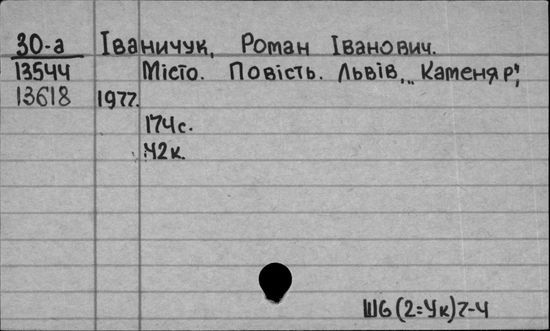 30-а Іваничук, Роман Іванович.
13544 Місто. Повість. Львів, „Каменяр",
13618 1977.
174с.
42к.
Ш6(2=Ук)7-4